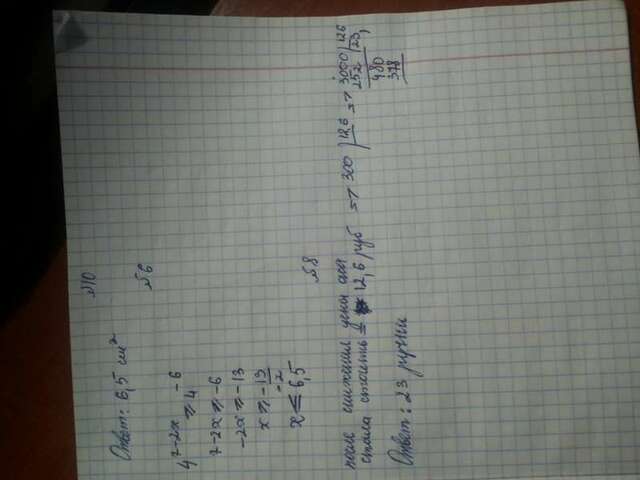 №10
Ответ: 6,5 см²
№6
4^{7-2x} ⩾ 4^{-6}
7-2x ⩾ -6
-2x ⩾ -13
x ⩾ -13/-2
x ≤ 6,5
№8
после снижения цены она
стала стоить = 12,6 руб => 300 | 12,6 => 3000 | 126
252 | 23,
480
378
Ответ: 23 ручки